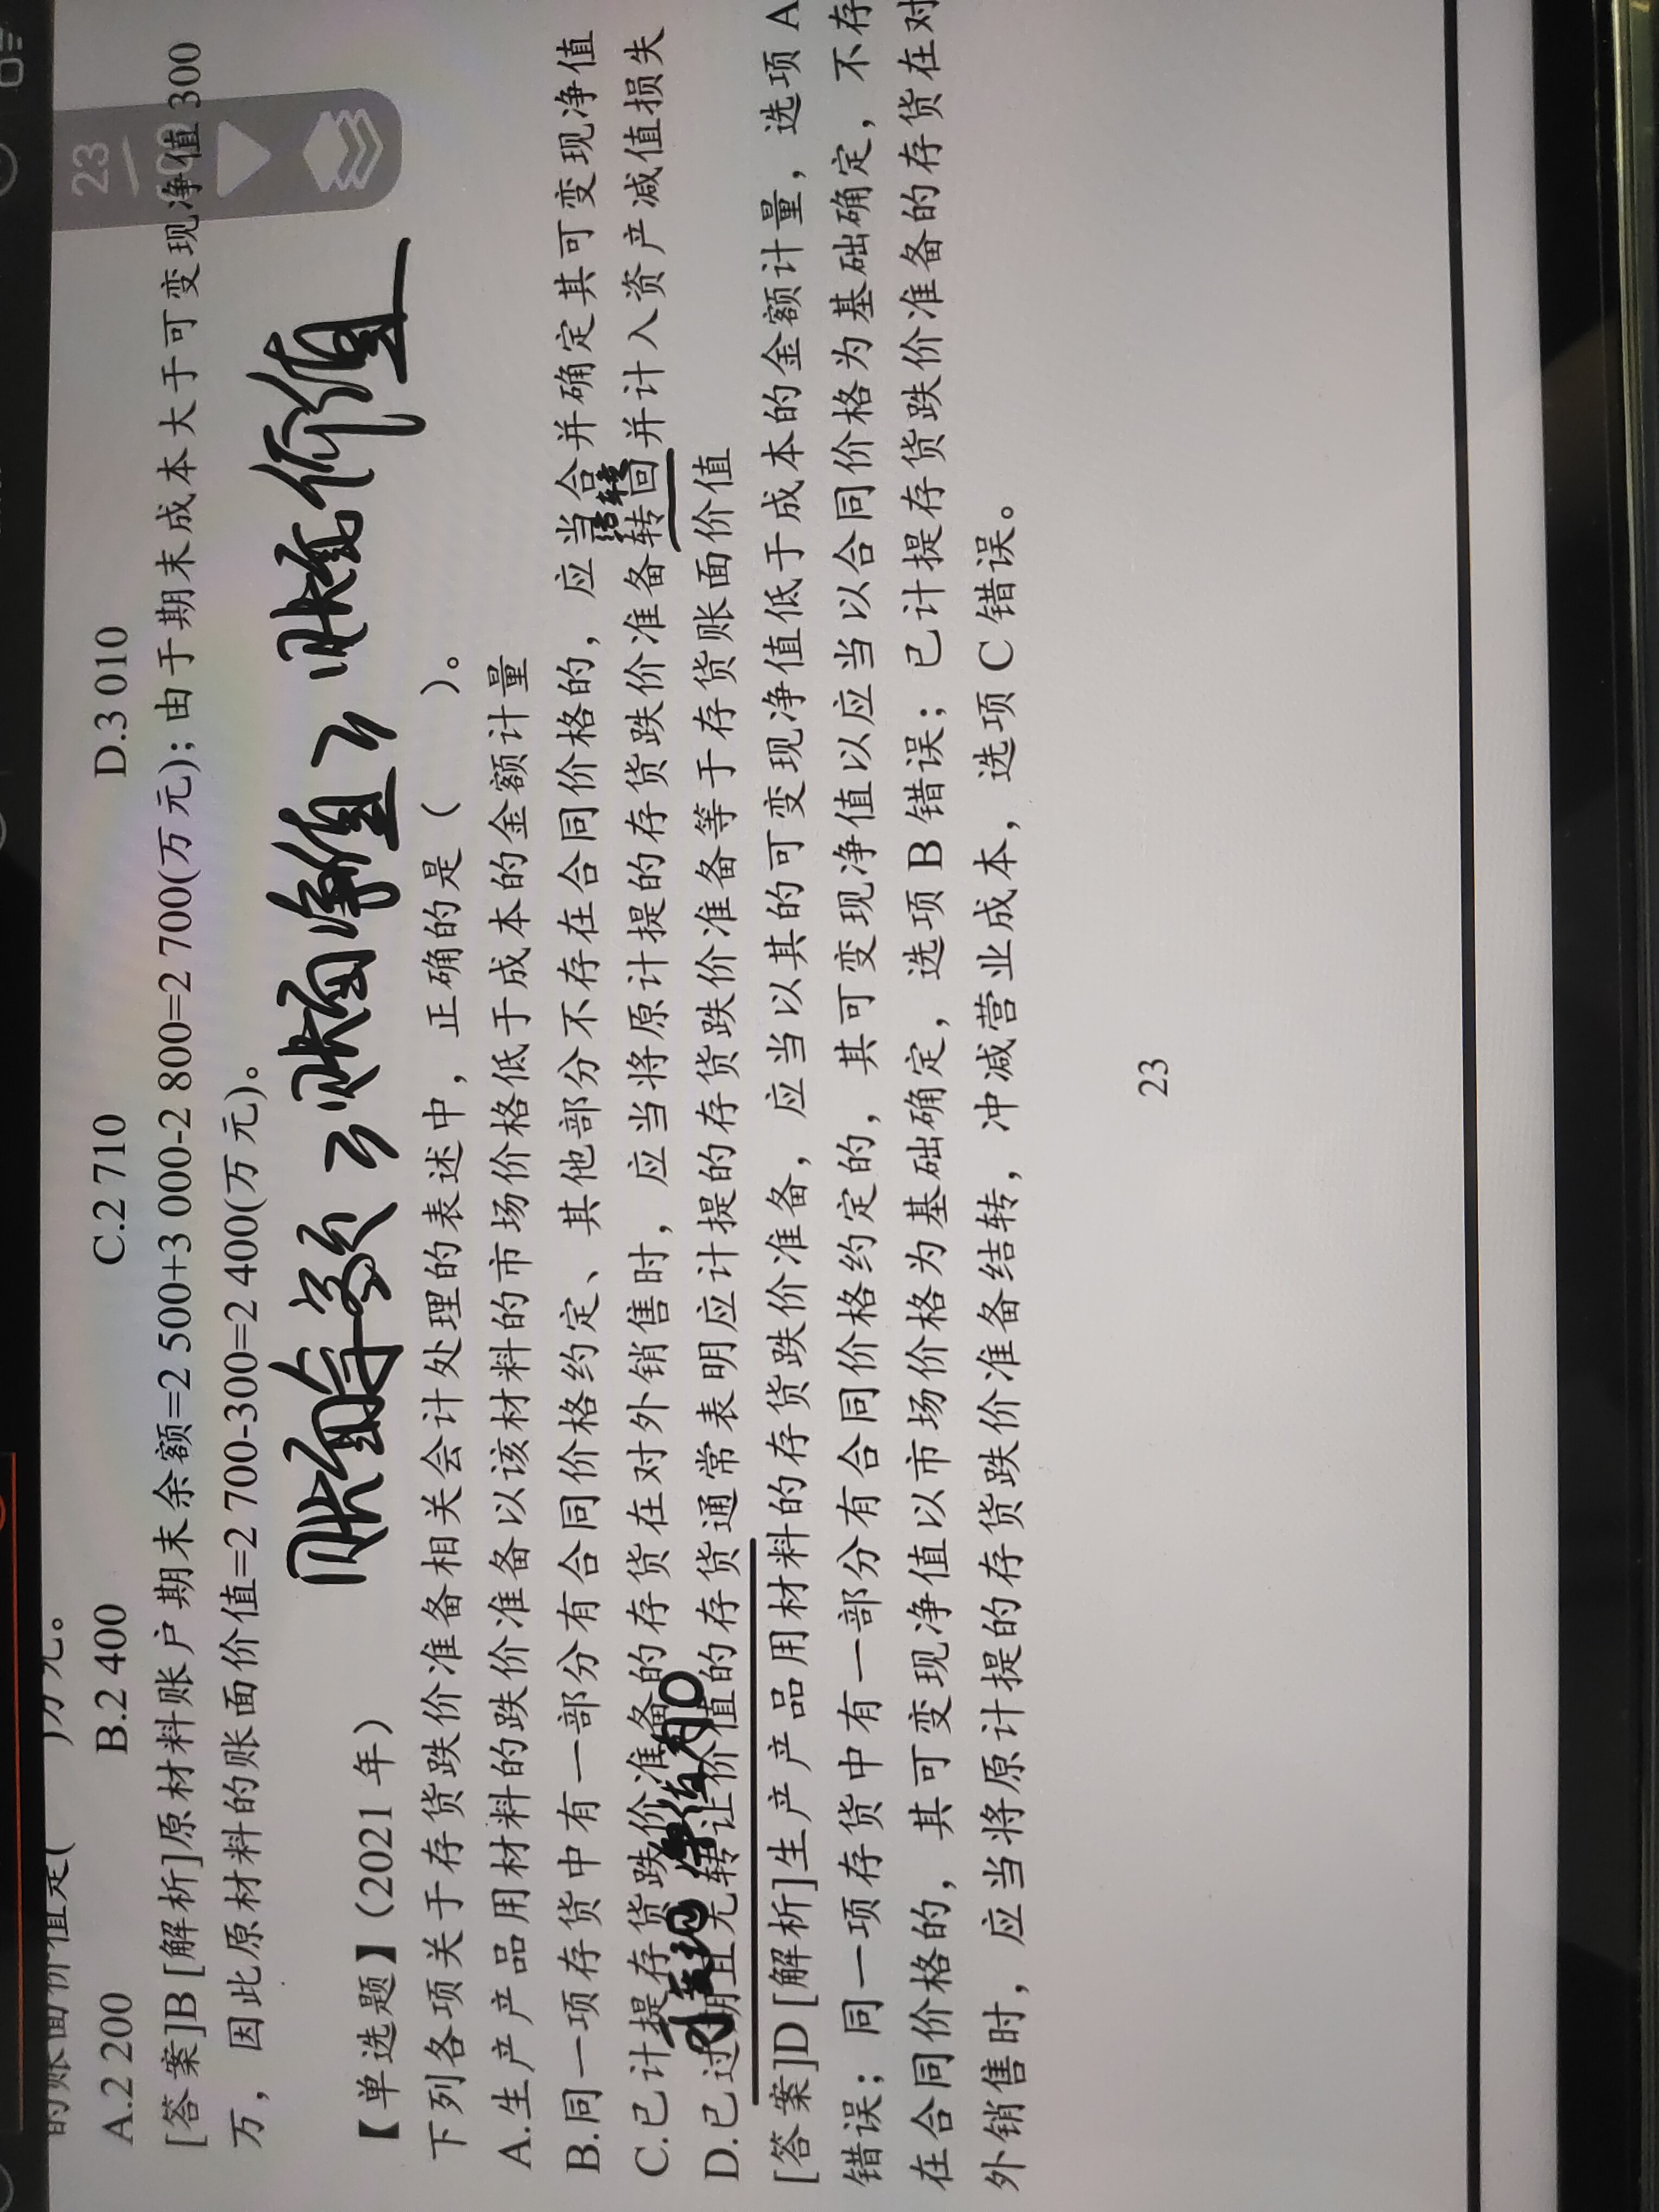 的账面价值是(    )万元。
A.2 200    B.2 400    C.2 710    D.3 010
[答案]B [解析]原材料账户期末余额=2 500+3 000-2 800=2 700(万元)；由于期末成本大于可变现净值 300
万，因此原材料的账面价值=2 700-300=2 400(万元)。
23
账面余额≥账面净值≥账面价值
【单选题】(2021 年)
下列各项关于存货跌价准备相关会计处理的表述中，正确的是(    )。
A.生产产品用材料的跌价准备以该材料的市场价格低于成本的金额计量
B.同一项存货中有一部分有合同价格约定、其他部分不存在合同价格的，应当合并确定其可变现净值
结转
C.已计提存货跌价准备的存货在对外销售时，应当将原计提的存货跌价准备转回并计入资产减值损失
可变现净值为0
D.已过期且无转让价值的存货通常表明应计提的存货跌价准备等于存货账面价值
[答案]D [解析]生产产品用材料的存货跌价准备，应当以其的可变现净值低于成本的金额计量，选项 A
错误；同一项存货中有一部分有合同价格约定的，其可变现净值以应当以合同价格为基础确定，不存
在合同价格的，其可变现净值以市场价格为基础确定，选项 B 错误；已计提存货跌价准备的存货在对
外销售时，应当将原计提的存货跌价准备结转，冲减营业成本，选项 C 错误。
23